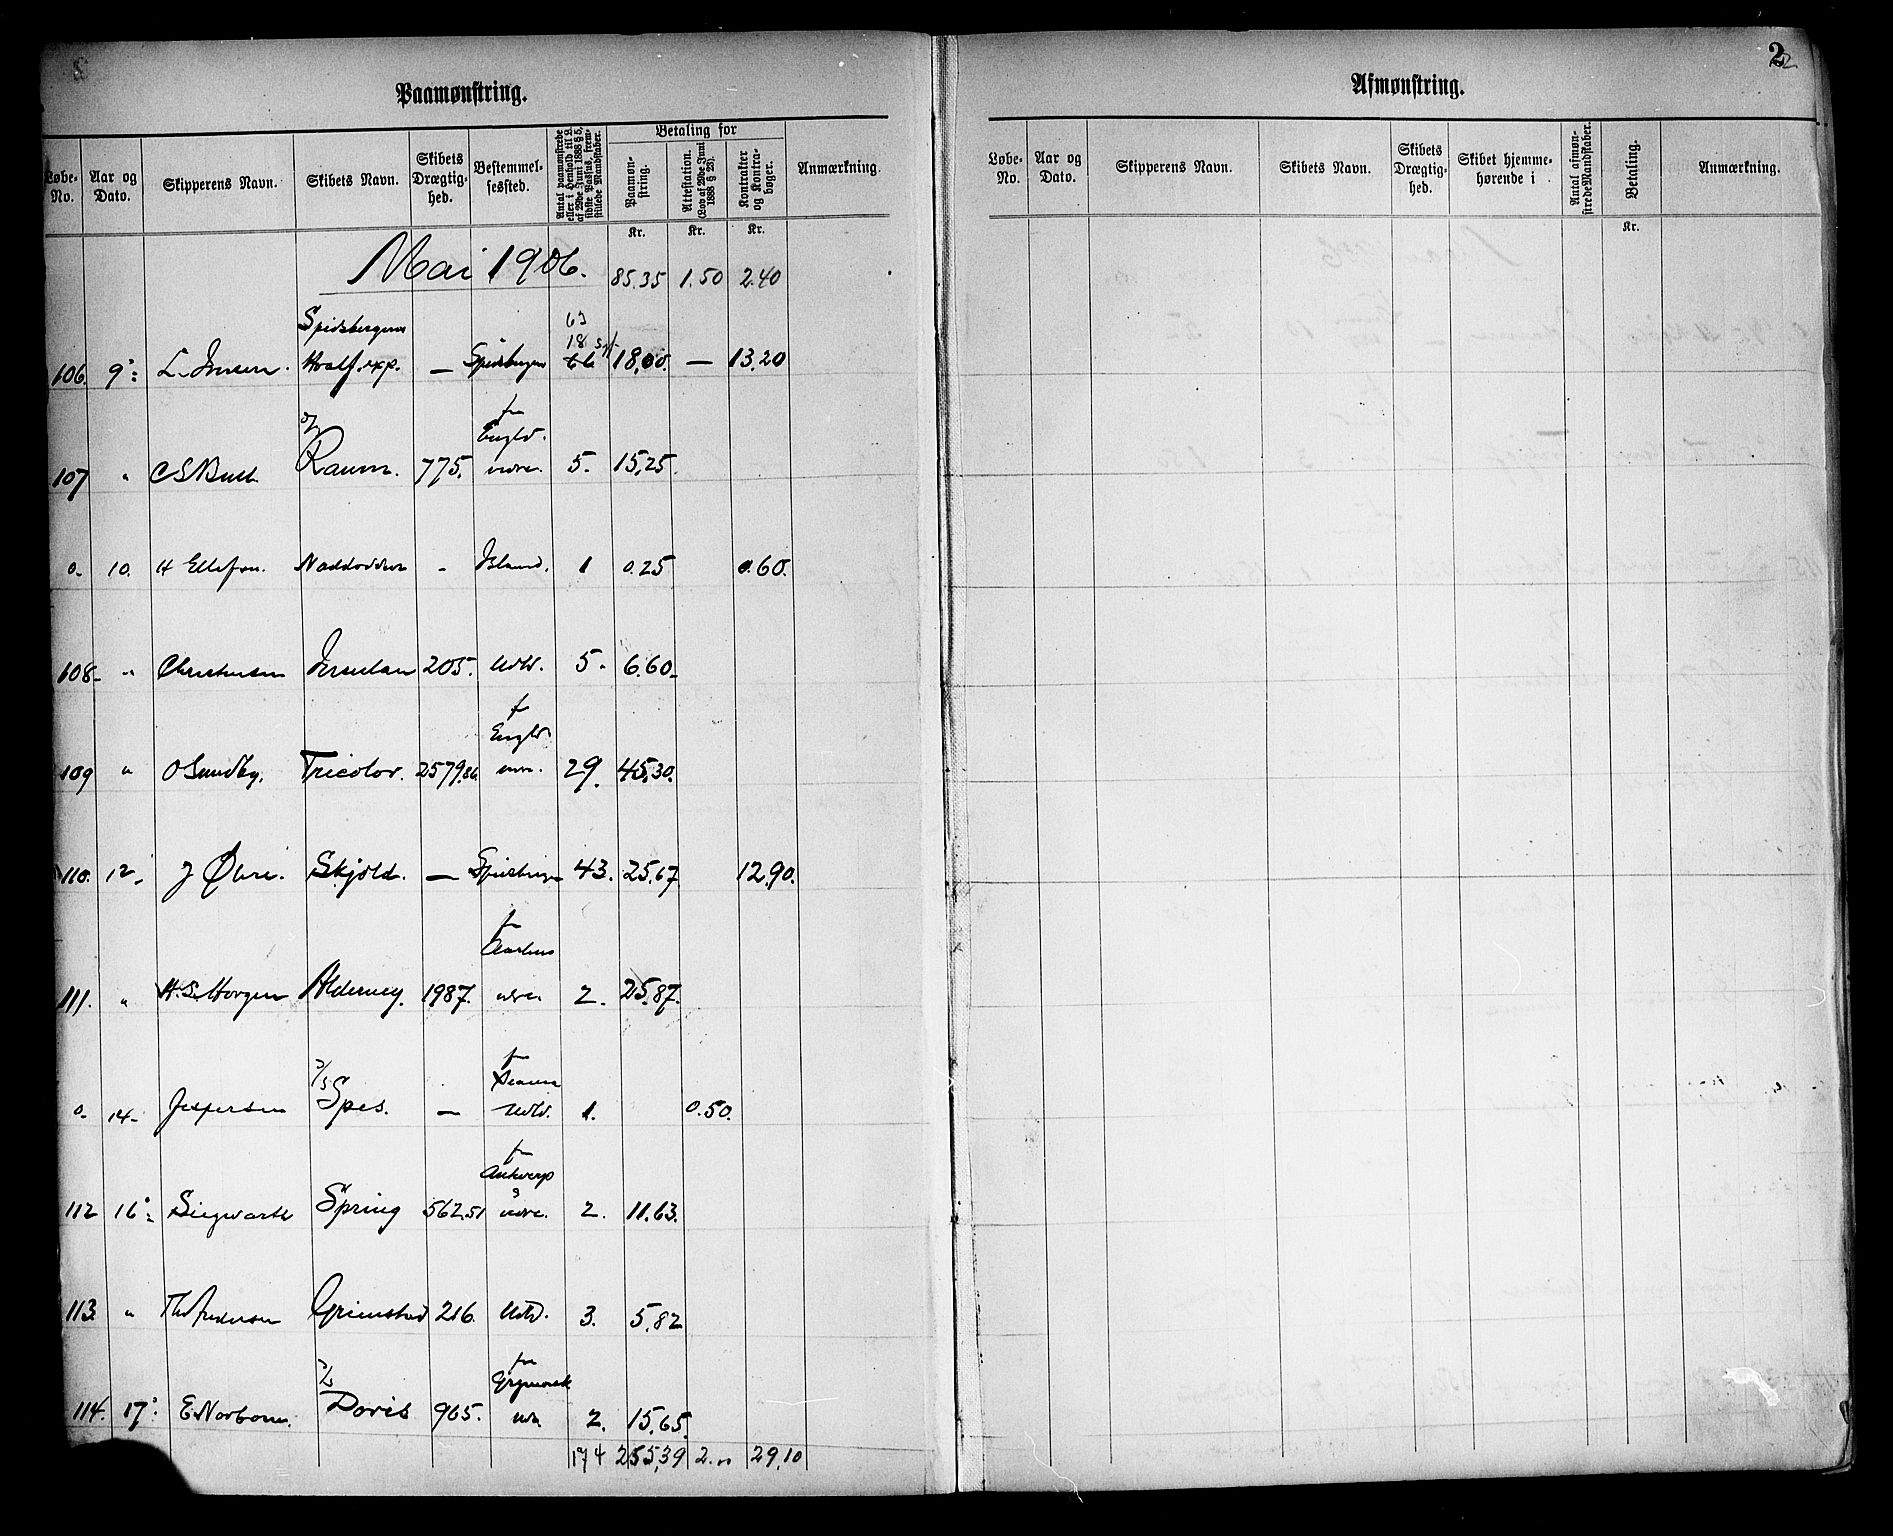 Paamønstring.
Løbe-No. | Aar og Dato. | Skipperens Navn. | Skibets Navn. | Skibets Drægtighed. | Bestemmelsessted. | Antal paamønstrede eller i Henhold til L. af 29de Juni 1888 § 5, sidste Passus, fremstillede Mandskaber. | Betaling for Paamønstring. Kr. | Attestation. (Lov af 29de Juni 1888 § 28). Kr. | Kontrakter og Kontrabøger. Kr. | Anmærkning.
Mai 1906. 85.35 1.50 2.40
Spidsbergens 63
18
106. 9 L. Hvalf.exp. — Spidsbergen 66 18.00. — 13.20
Engld.
107 " C S Bull Raum. 775. videre. 5. 15.25.
0- 10. H Ellefsen. Naddodden - Island. 1 0.25 0.60.
108- " Christensen 205. Udld. 5. 6.60-
f
Engld
109 " O Sundby. Tricolor. 2579.86 29. 45.30.
110. 12- J Skjold. — Spidsbergen 43. 25.67 12.90.
f
Aarhus
111. " H. S. Horgen Alderney. 1987. vdre. 2. 25.87.
f
S/S
0- 14- Jespersen Spes. — Udld. 1. 0.50.
fr
Antwerp
112 16 Siegwarth Spring 562.51 vidre. 2. 11.63.
113. " Th Andersen Grimstad 216. Udld. 3. 5.82
fra
114. 17 E Norbom. Doris 965. 2. 15.65.
174 255,39 2.00 29.10
2
Afmønstring.
Løbe-No. | Aar og Dato. | Skipperens Navn. | Skibets Navn. | Skibets Drægtighed. | Skibet hjemmehørende i | Antal afmønstrede Mandskaber. | Betaling. Kr. | Anmærkning.